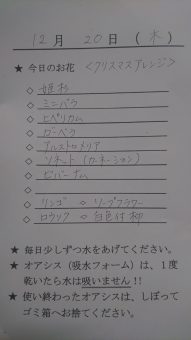 12月 20日 (木)
★ 今日のお花 〈クリスマスアレンジ〉
◇ 姫杉
◇ ミニバラ
◇ ヒペリカム
◇ ガーベラ
◇ アルストロメリア
◇ ソネット (カーネーション)
◇ ビバーナム
◇
◇ リンゴ ◇ ソープフラワー
◇ ロウソク ◇ 白色付柳
★ 毎日少しずつ水をあげてください。
★ オアシス(吸水フォーム)は、1度
乾いたら水は吸いません!!
★ 使い終わったオアシスは、しぼって
ゴミ箱へお捨てください。